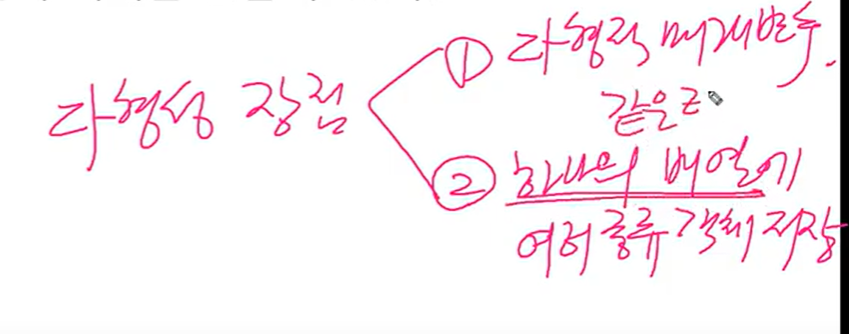 다형성 장점
① 다형적 매개변수.
같은
② 하나의 배열에
여러 종류 객체 저장